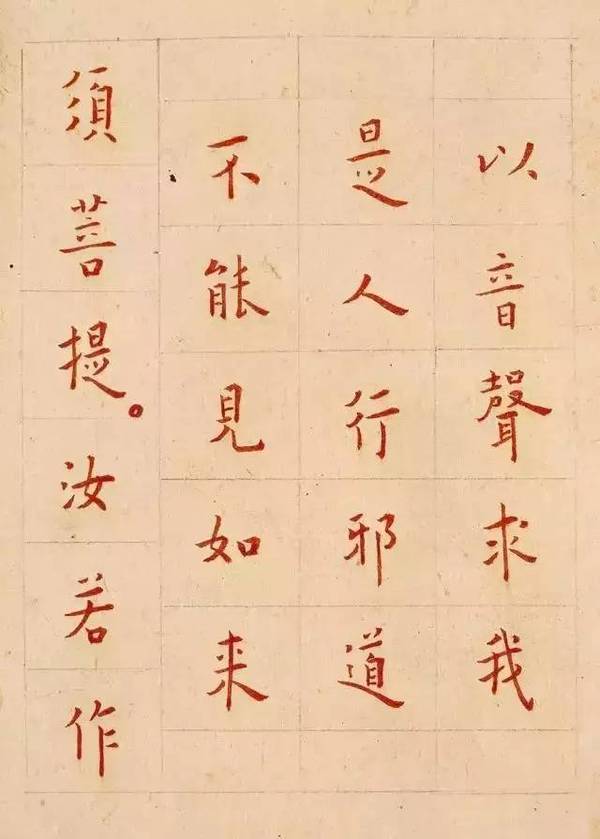 以音聲求我
是人行邪道
不能見如来
須菩提。汝若作